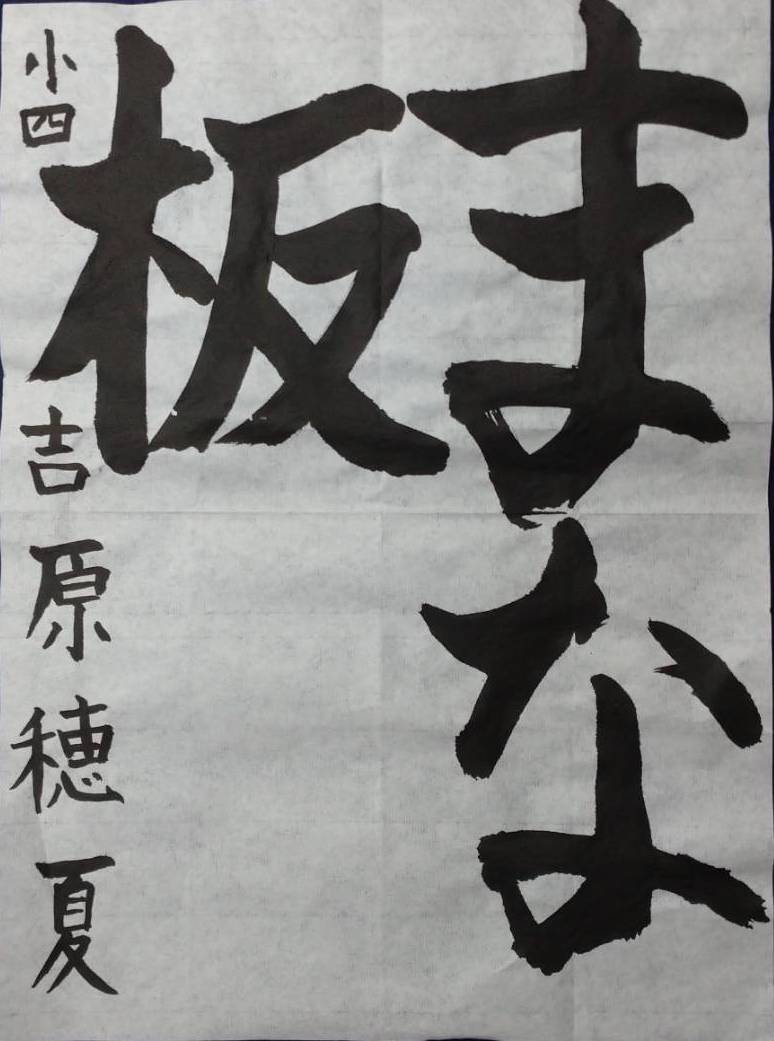 まな
板
小四 吉原穂夏